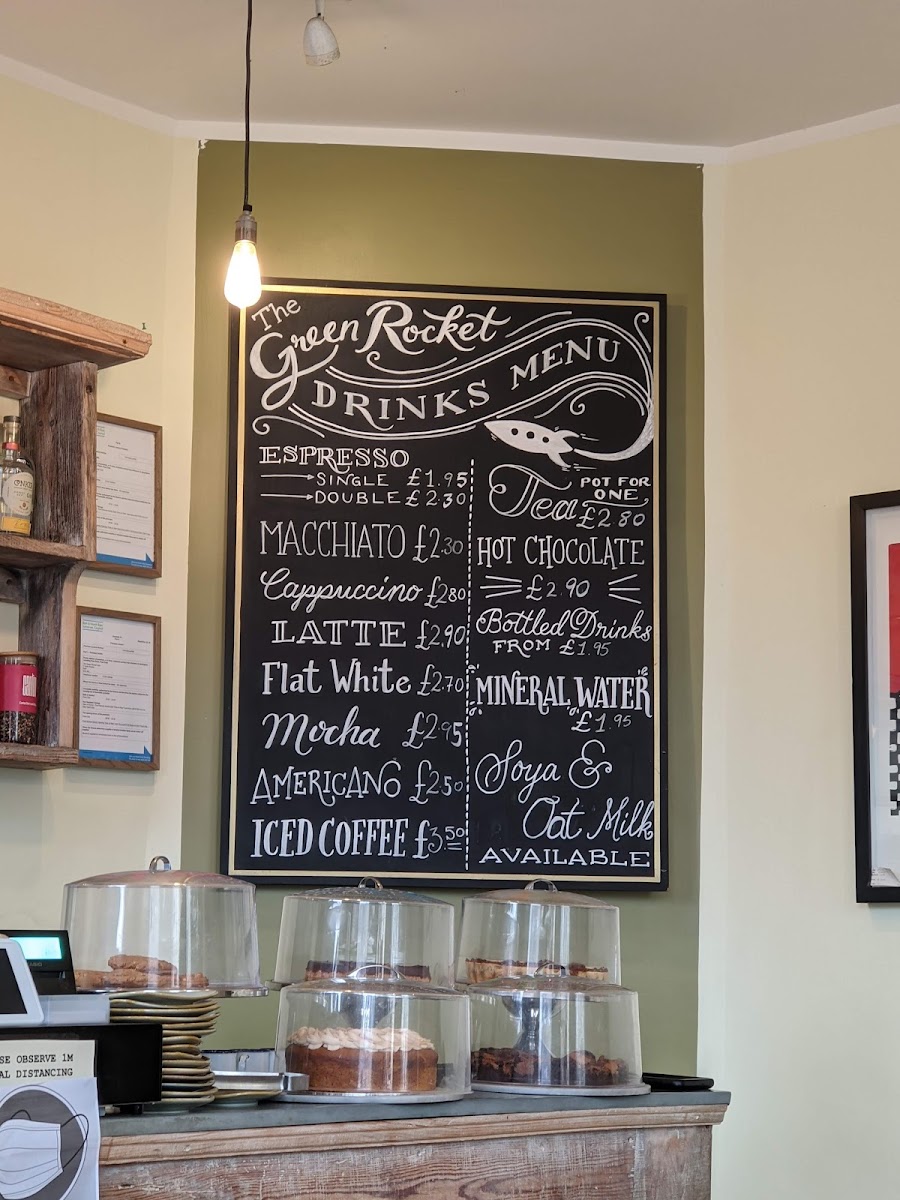 The
Green Rocket
DRINKS MENU
ESPRESSO
SINGLE £1.95
DOUBLE £2.30
MACCHIATO £2.30
Cappuccino £2.80
LATTE £2.90
Flat White £2.70
Mocha £2.95
AMERICANO £2.50
ICED COFFEE £3.50
Tea POT FOR
ONE
£2.80
HOT CHOCOLATE
£2.90
Bottled Drinks
FROM £1.95
MINERAL WATER
£1.95
Soya &
Oat Milk
AVAILABLE
SE OBSERVE 1M
AL DISTANCING